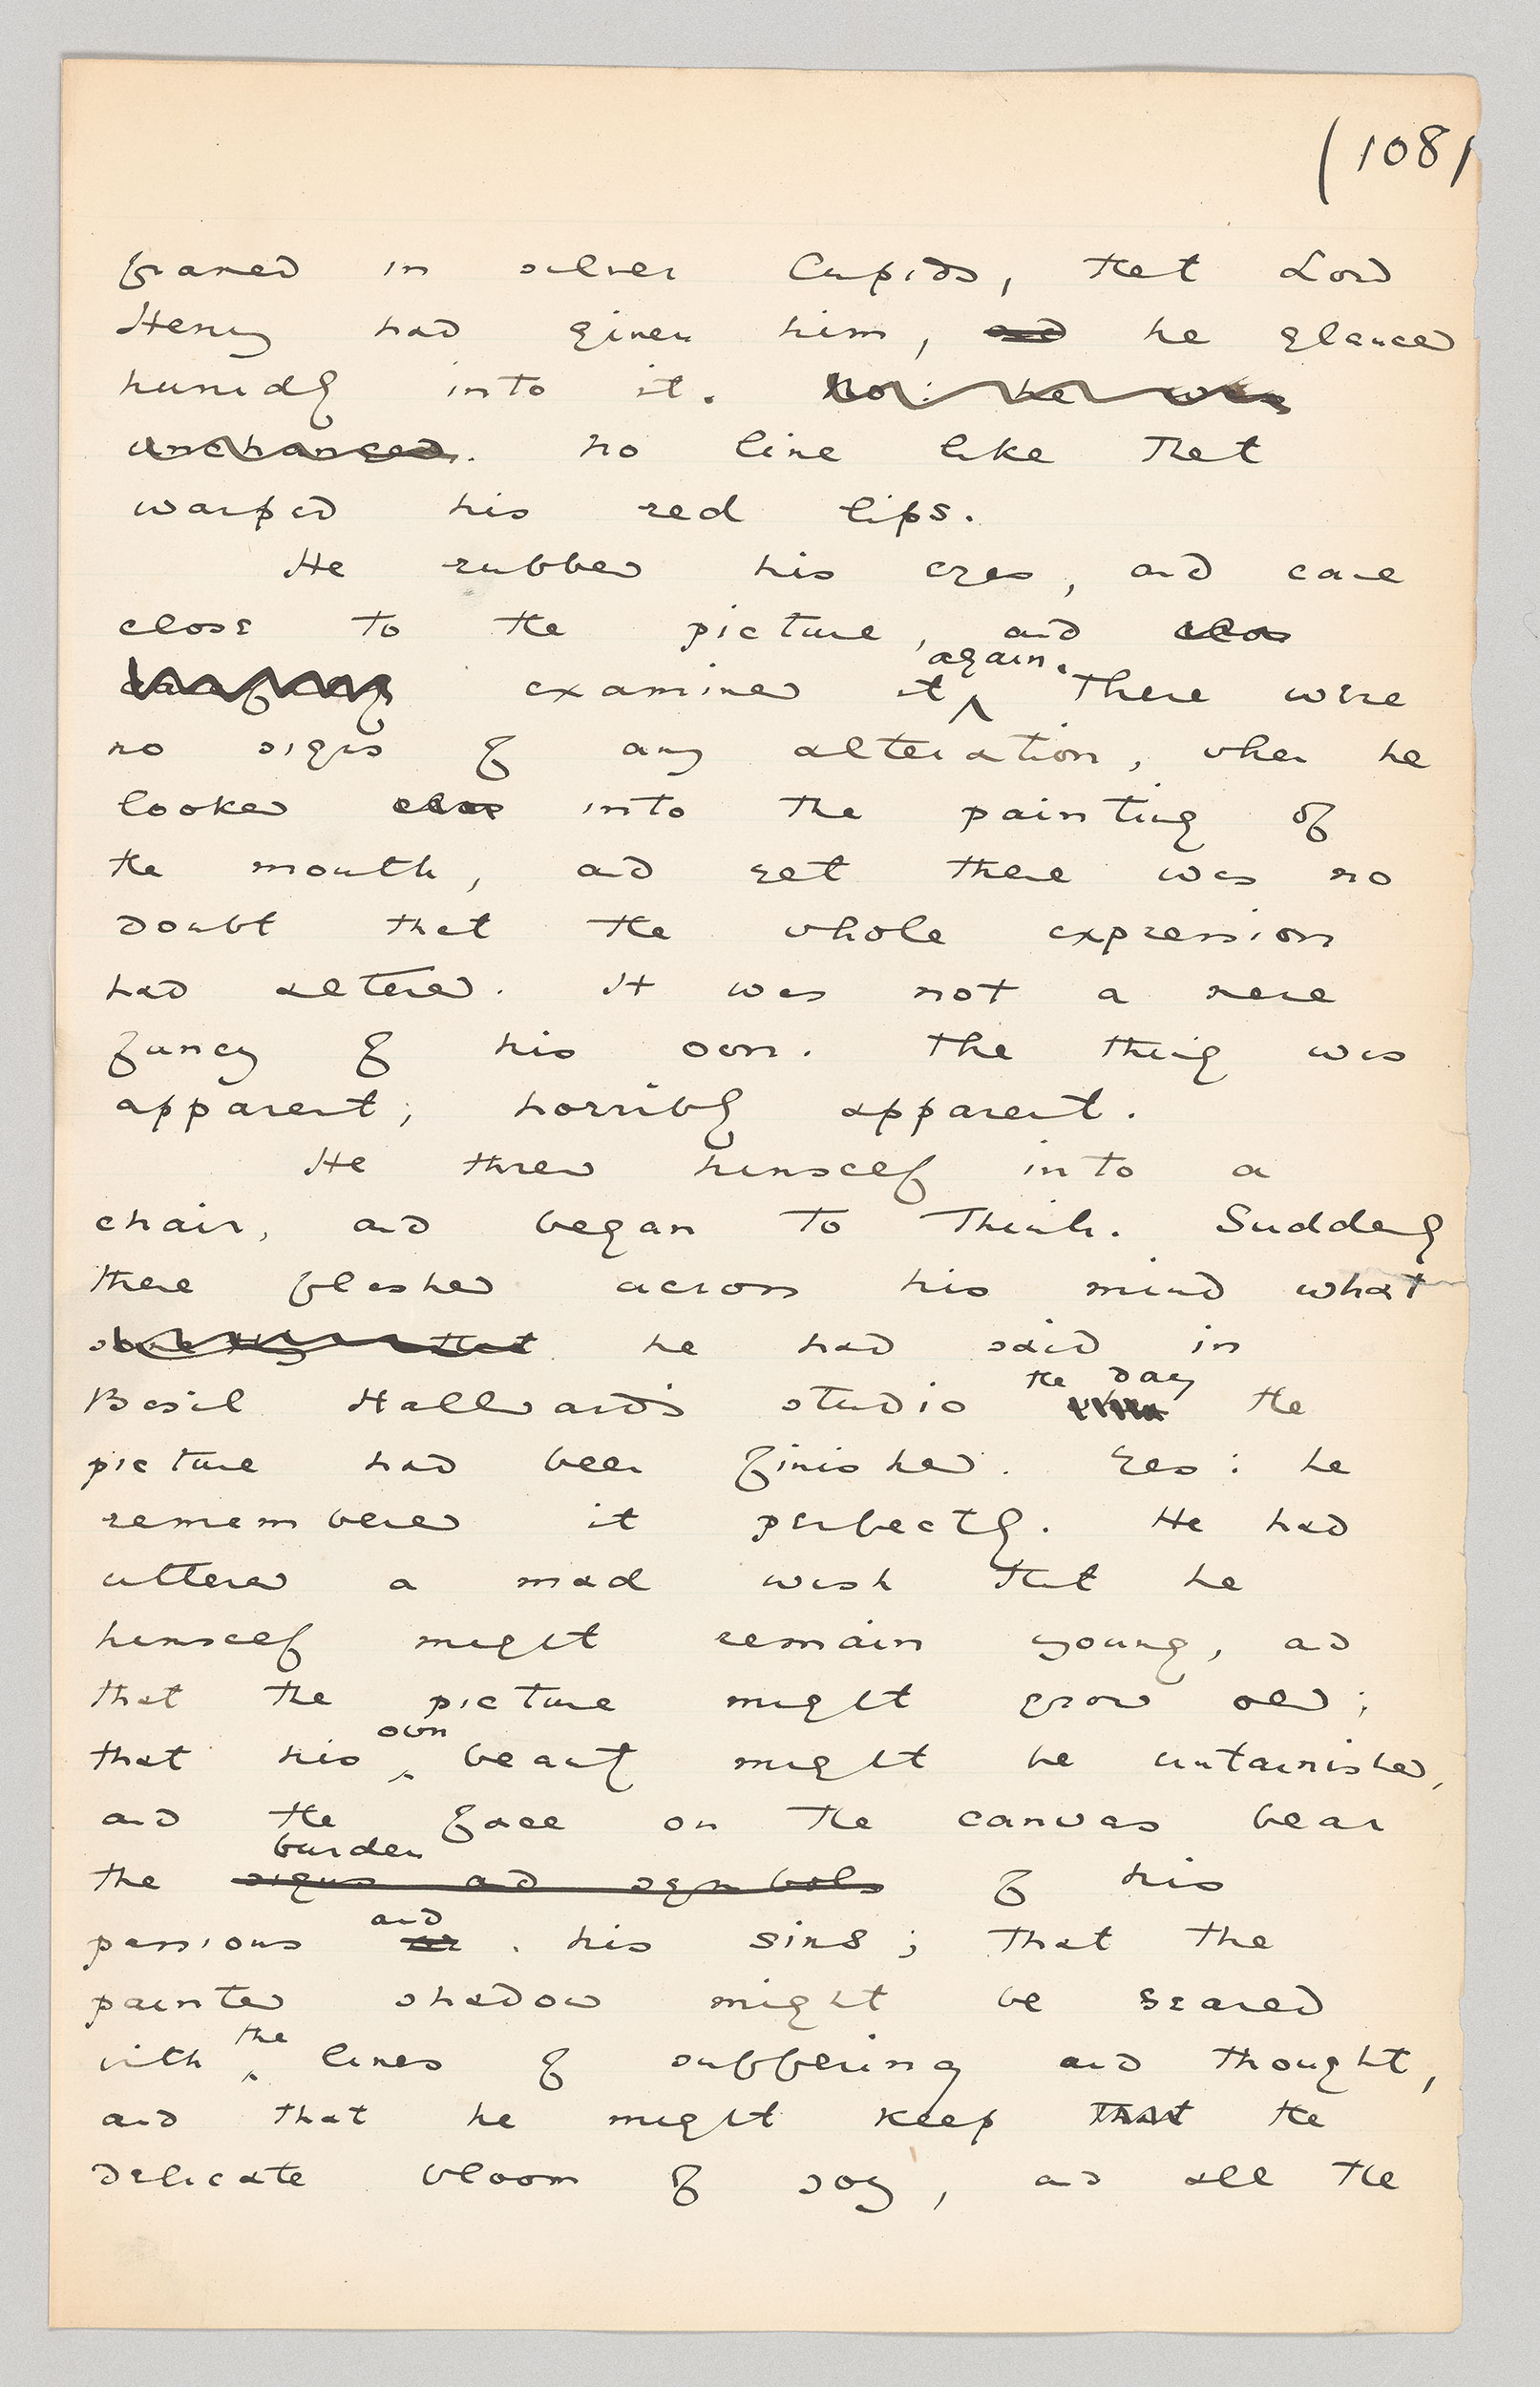 (108)
framed in silver Cupids, that Lord
Henry had given him, and he glanced
hurriedly into it. No: he was
unchanged. No line like that
warped his red lips.
He rubbed his eyes, and came
close to the picture, and clos
again.
examined it ^ There were
no signs of any alteration, when he
looked clos into the painting of
the mouth, and yet there was no
doubt that the whole expression
had altered. It was not a mere
fancy of his own. The thing was
apparent, horribly apparent.
He threw himself into a
chair, and began to think. Suddenly
there flashed across his mind what
something that he had said in
the day
Basil Hallward's studio when the
picture had been finished. Yes: he
remembered it perfectly. He had
uttered a mad wish that he
himself might remain young, and
that the picture might grow old;
own
that his ^ beauty might be untarnished,
and the face on the canvas bear
burden
the signs and symbols of his
and
passions or his sins; that the
painted shadow might be seared
the
with ^ lines of suffering and thought,
and that he might keep that the
delicate bloom of joy, and all the